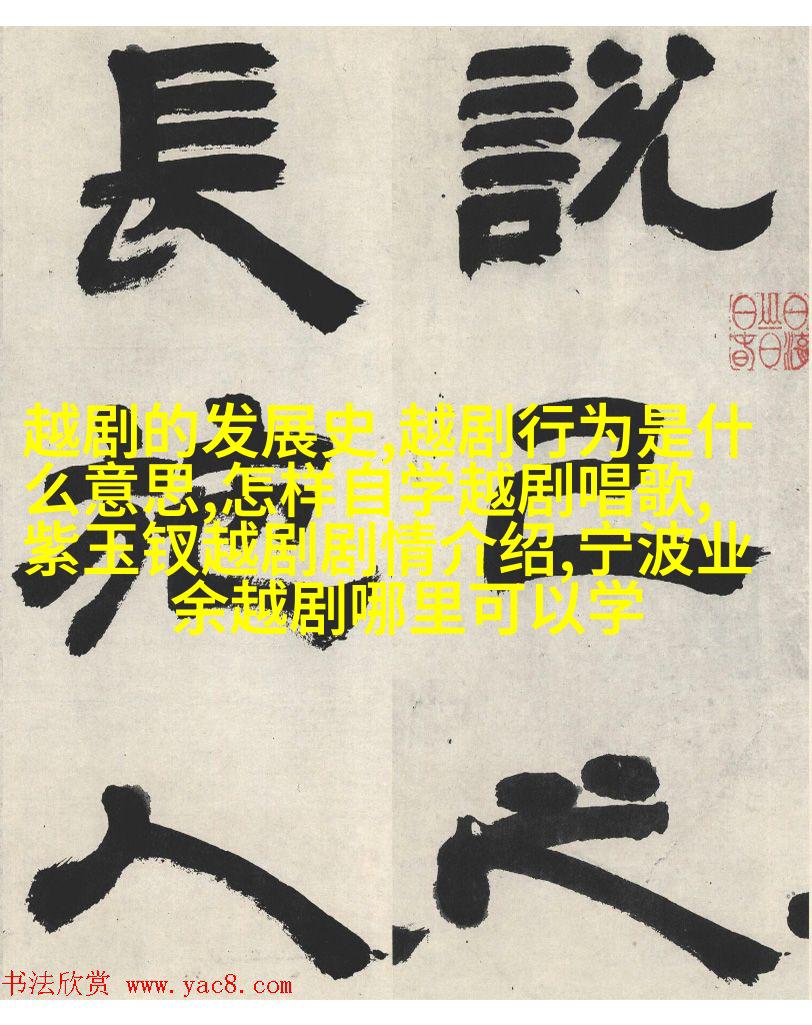 說己之
長施人
越剧的发展史,越剧行为是什
么意思,怎样自学越剧唱歌,
紫玉钗越剧剧情介绍,宁波业
余越剧哪里可以学
书法欣赏 www.yac8.com